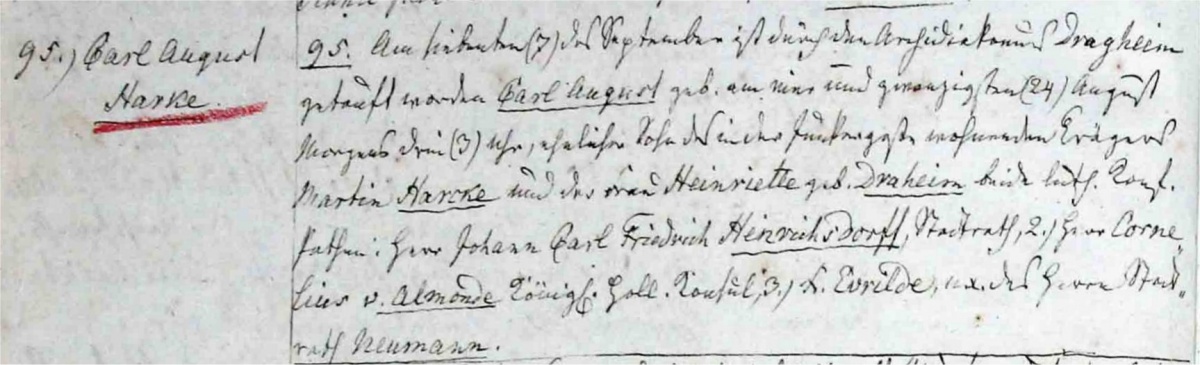 95.) Carl August
Harke.
95. Am siebenten (7) des September ist durch den Archidiakonus Dragheim
getauft worden Carl August geb. am vier und zwanzigsten (24) August
Morgens drei (3) Uhr, ehelicher Sohn des in der Junkergasse wohnenden Trägers
Martin Harcke und der Frau Heinriette geb. Draheim beide luth. Konf.
Pathen: Herr Johann Carl Friedrich Heinrichsdorff, Stadtrath, 2.) Herr Corne„
lius v. Almonde Königl. Holl. Konsul, 3.) Evrilde, ux. des Herrn Stadt„
rath Neumann.